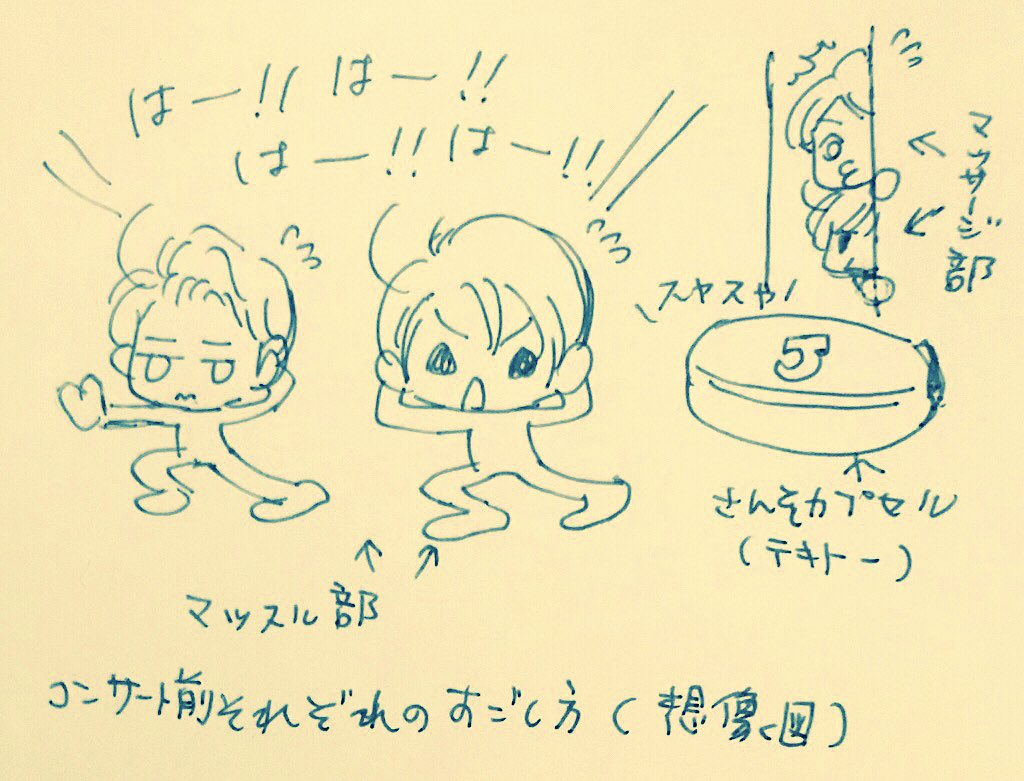 はー!! はー!!
はー!! はー!!
マッサージ部
スヤスヤ
さんそカプセル
(テキトー)
マッスル部
コンサート前それぞれのすごし方(想像図)